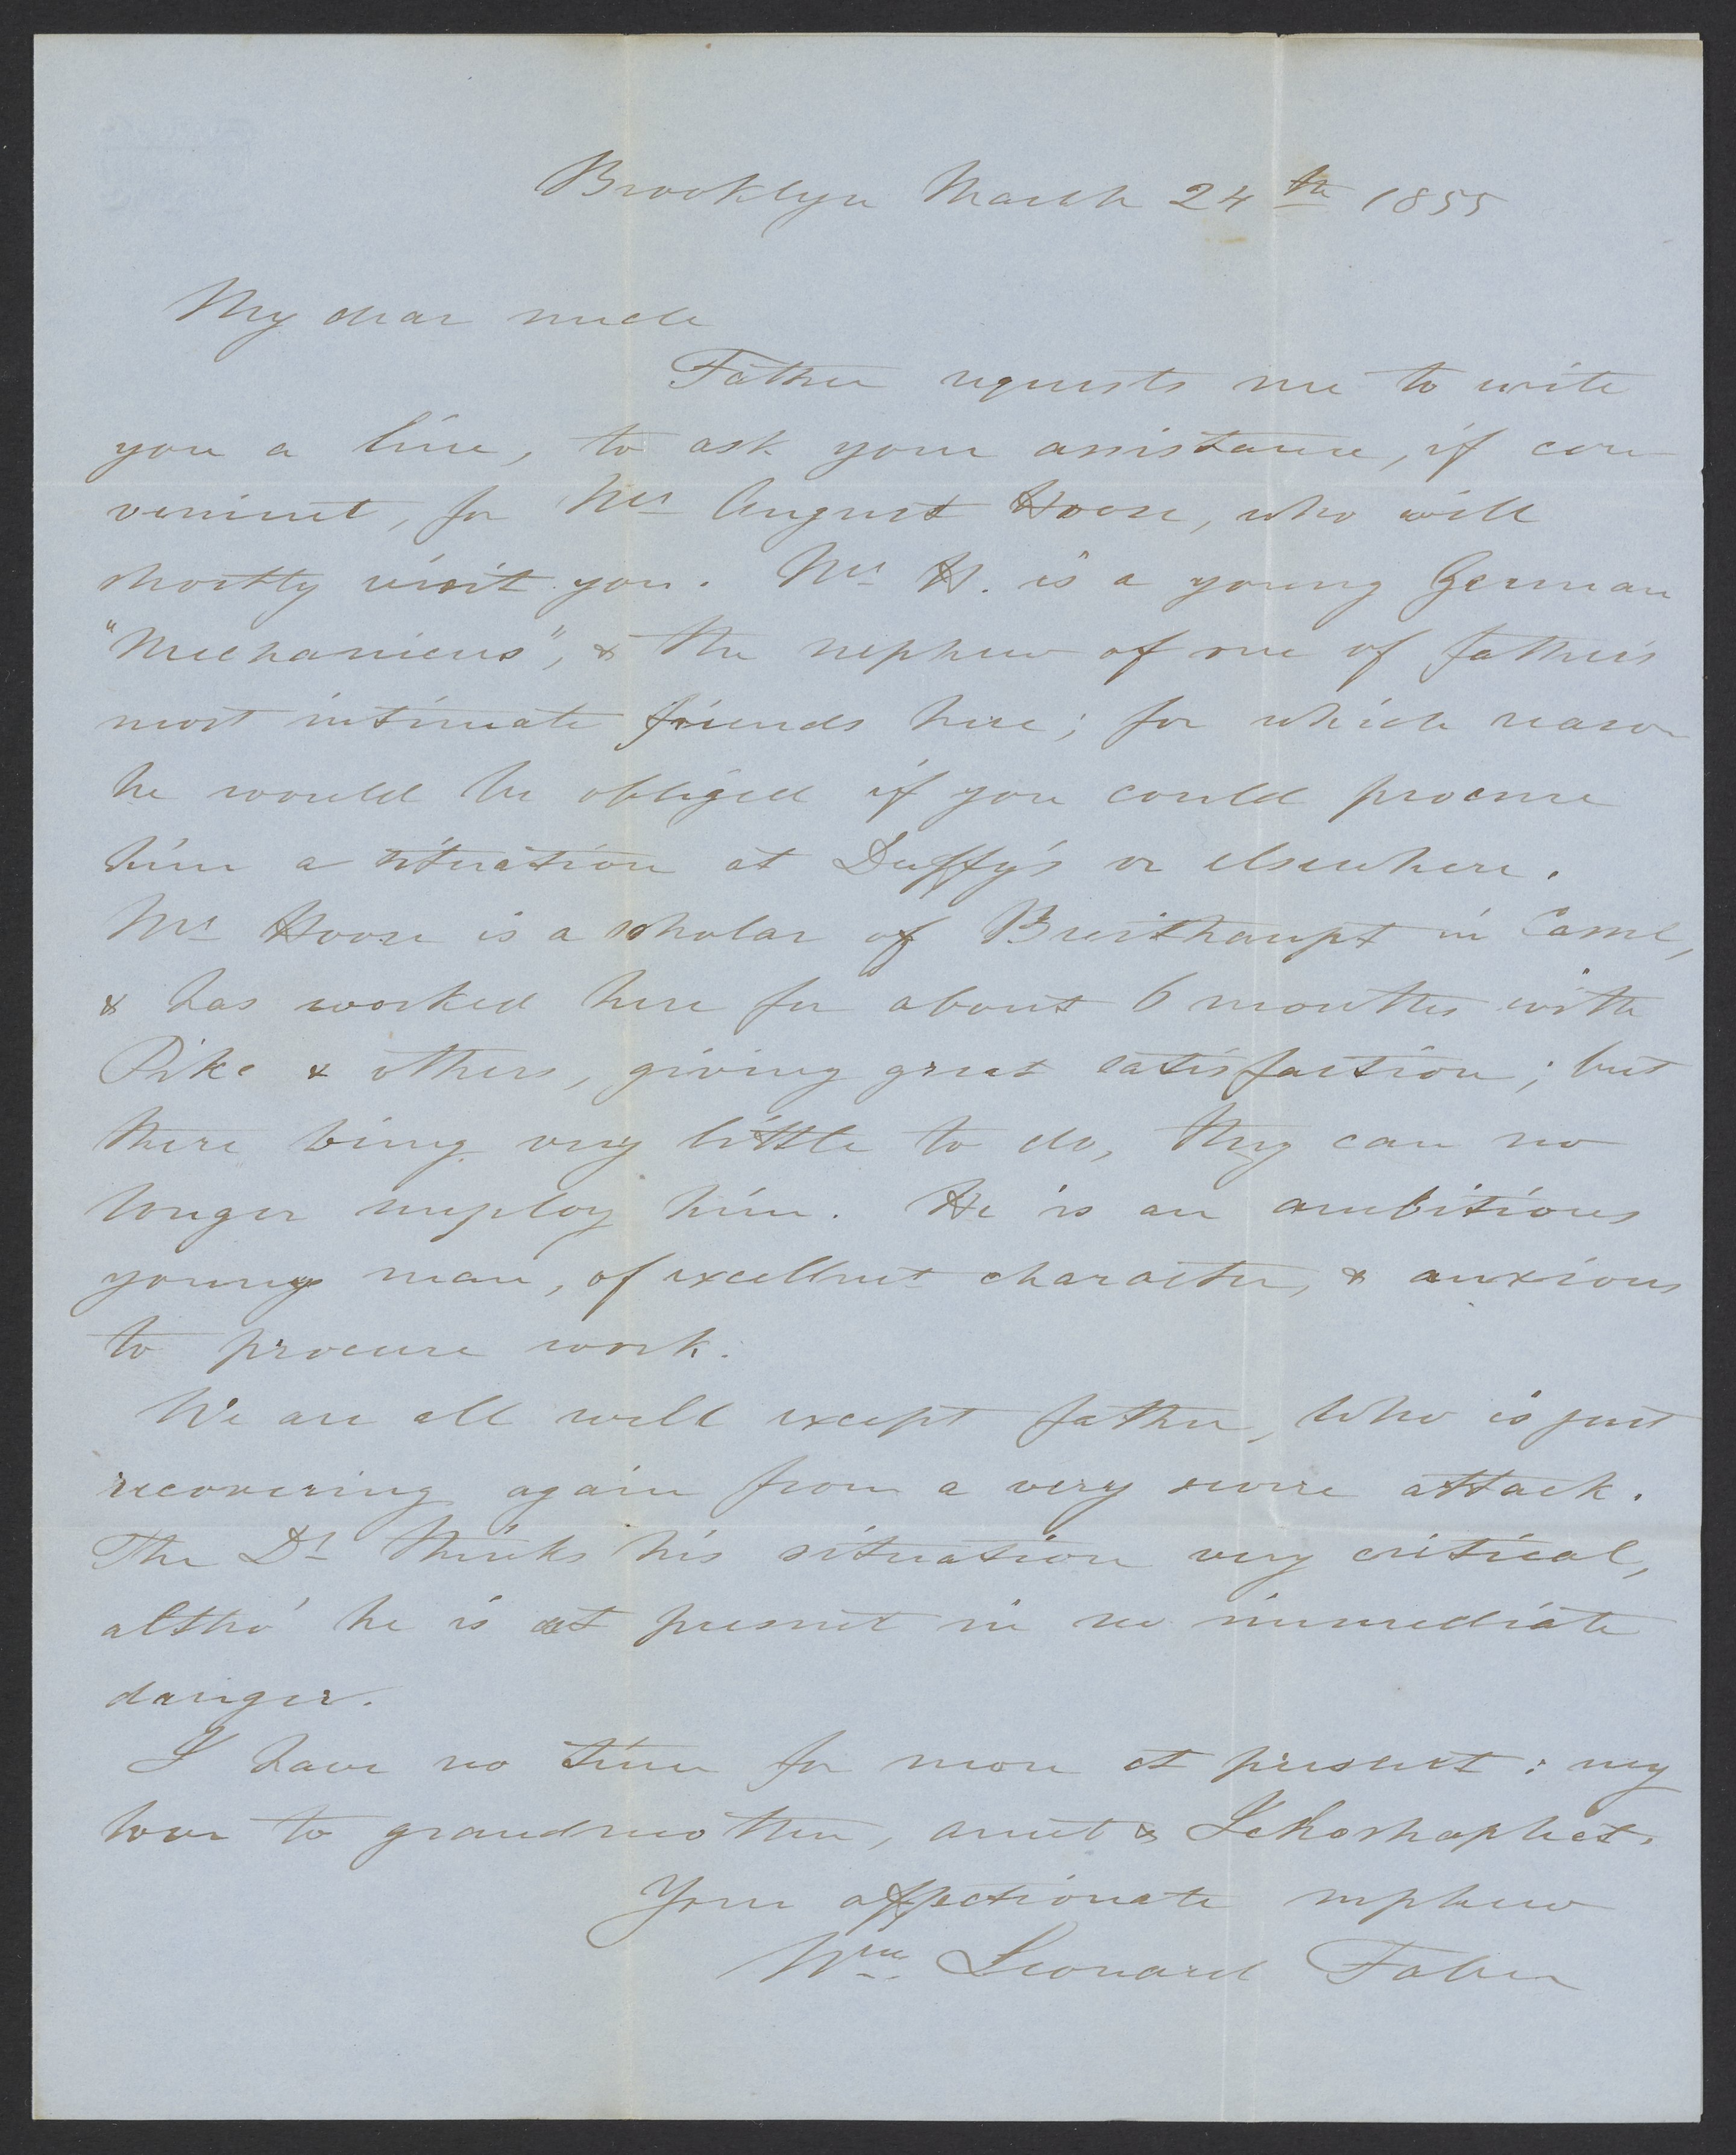 Brooklyn March 24th 1855
My dear uncle
Father requests me to write
you a line, to ask your assistance, if con
venient, for Mr August Hoose, who will
shortly visit you. Mr H. is a young German
"Mechanicus", & the nephew of one of father's
most intimate friends here; for which reason
he would be obliged if you could procure
him a situation at Duffy's or elsewhere.
Mr Hoose is a scholar of Breithaupt in Cassel,
& has worked here for about 6 months with
Pike & others, giving great satisfaction; but
there being very little to do, they can no
longer employ him. He is an ambitious
young man, of excellent character, & anxious
to procure work.
We are all well except father, who is just
recovering again from a very severe attack.
The Dr thinks his situation very critical,
altho' he is at present in no immediate
danger.
I have no time for more at present: my
love to grandmother, aunt &
Your affectionate nephew
Wm. Leonard Faber